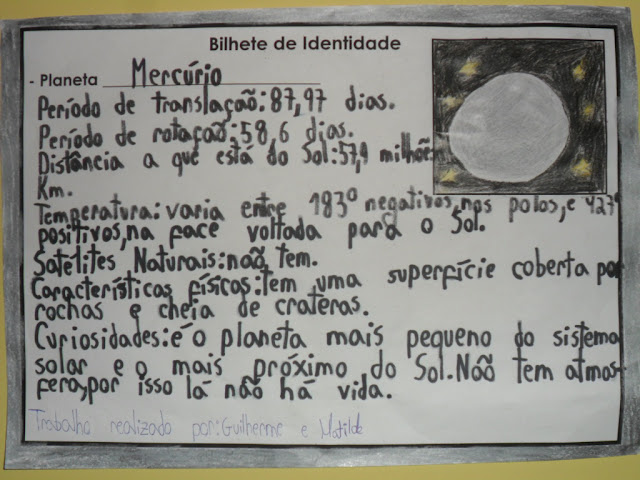 Bilhete de Identidade
- Planeta Mercúrio
Período de translação:87,97 dias.
Período de rotação:58,6 dias.
Distância a que está do Sol:57,9 milhões
Km.
Temperatura:varia entre 183º negativos,nos polos,e 427º
positivos,na face voltada para o Sol.
Satélites Naturais:não tem.
Características físicas:tem uma superfície coberta por
rochas e cheia de crateras.
Curiosidades:é o planeta mais pequeno do sistema
solar e o mais próximo do Sol.Não tem atmos-
fera,por isso lá não há vida.
Trabalho realizado por:Guilherme e Matilde